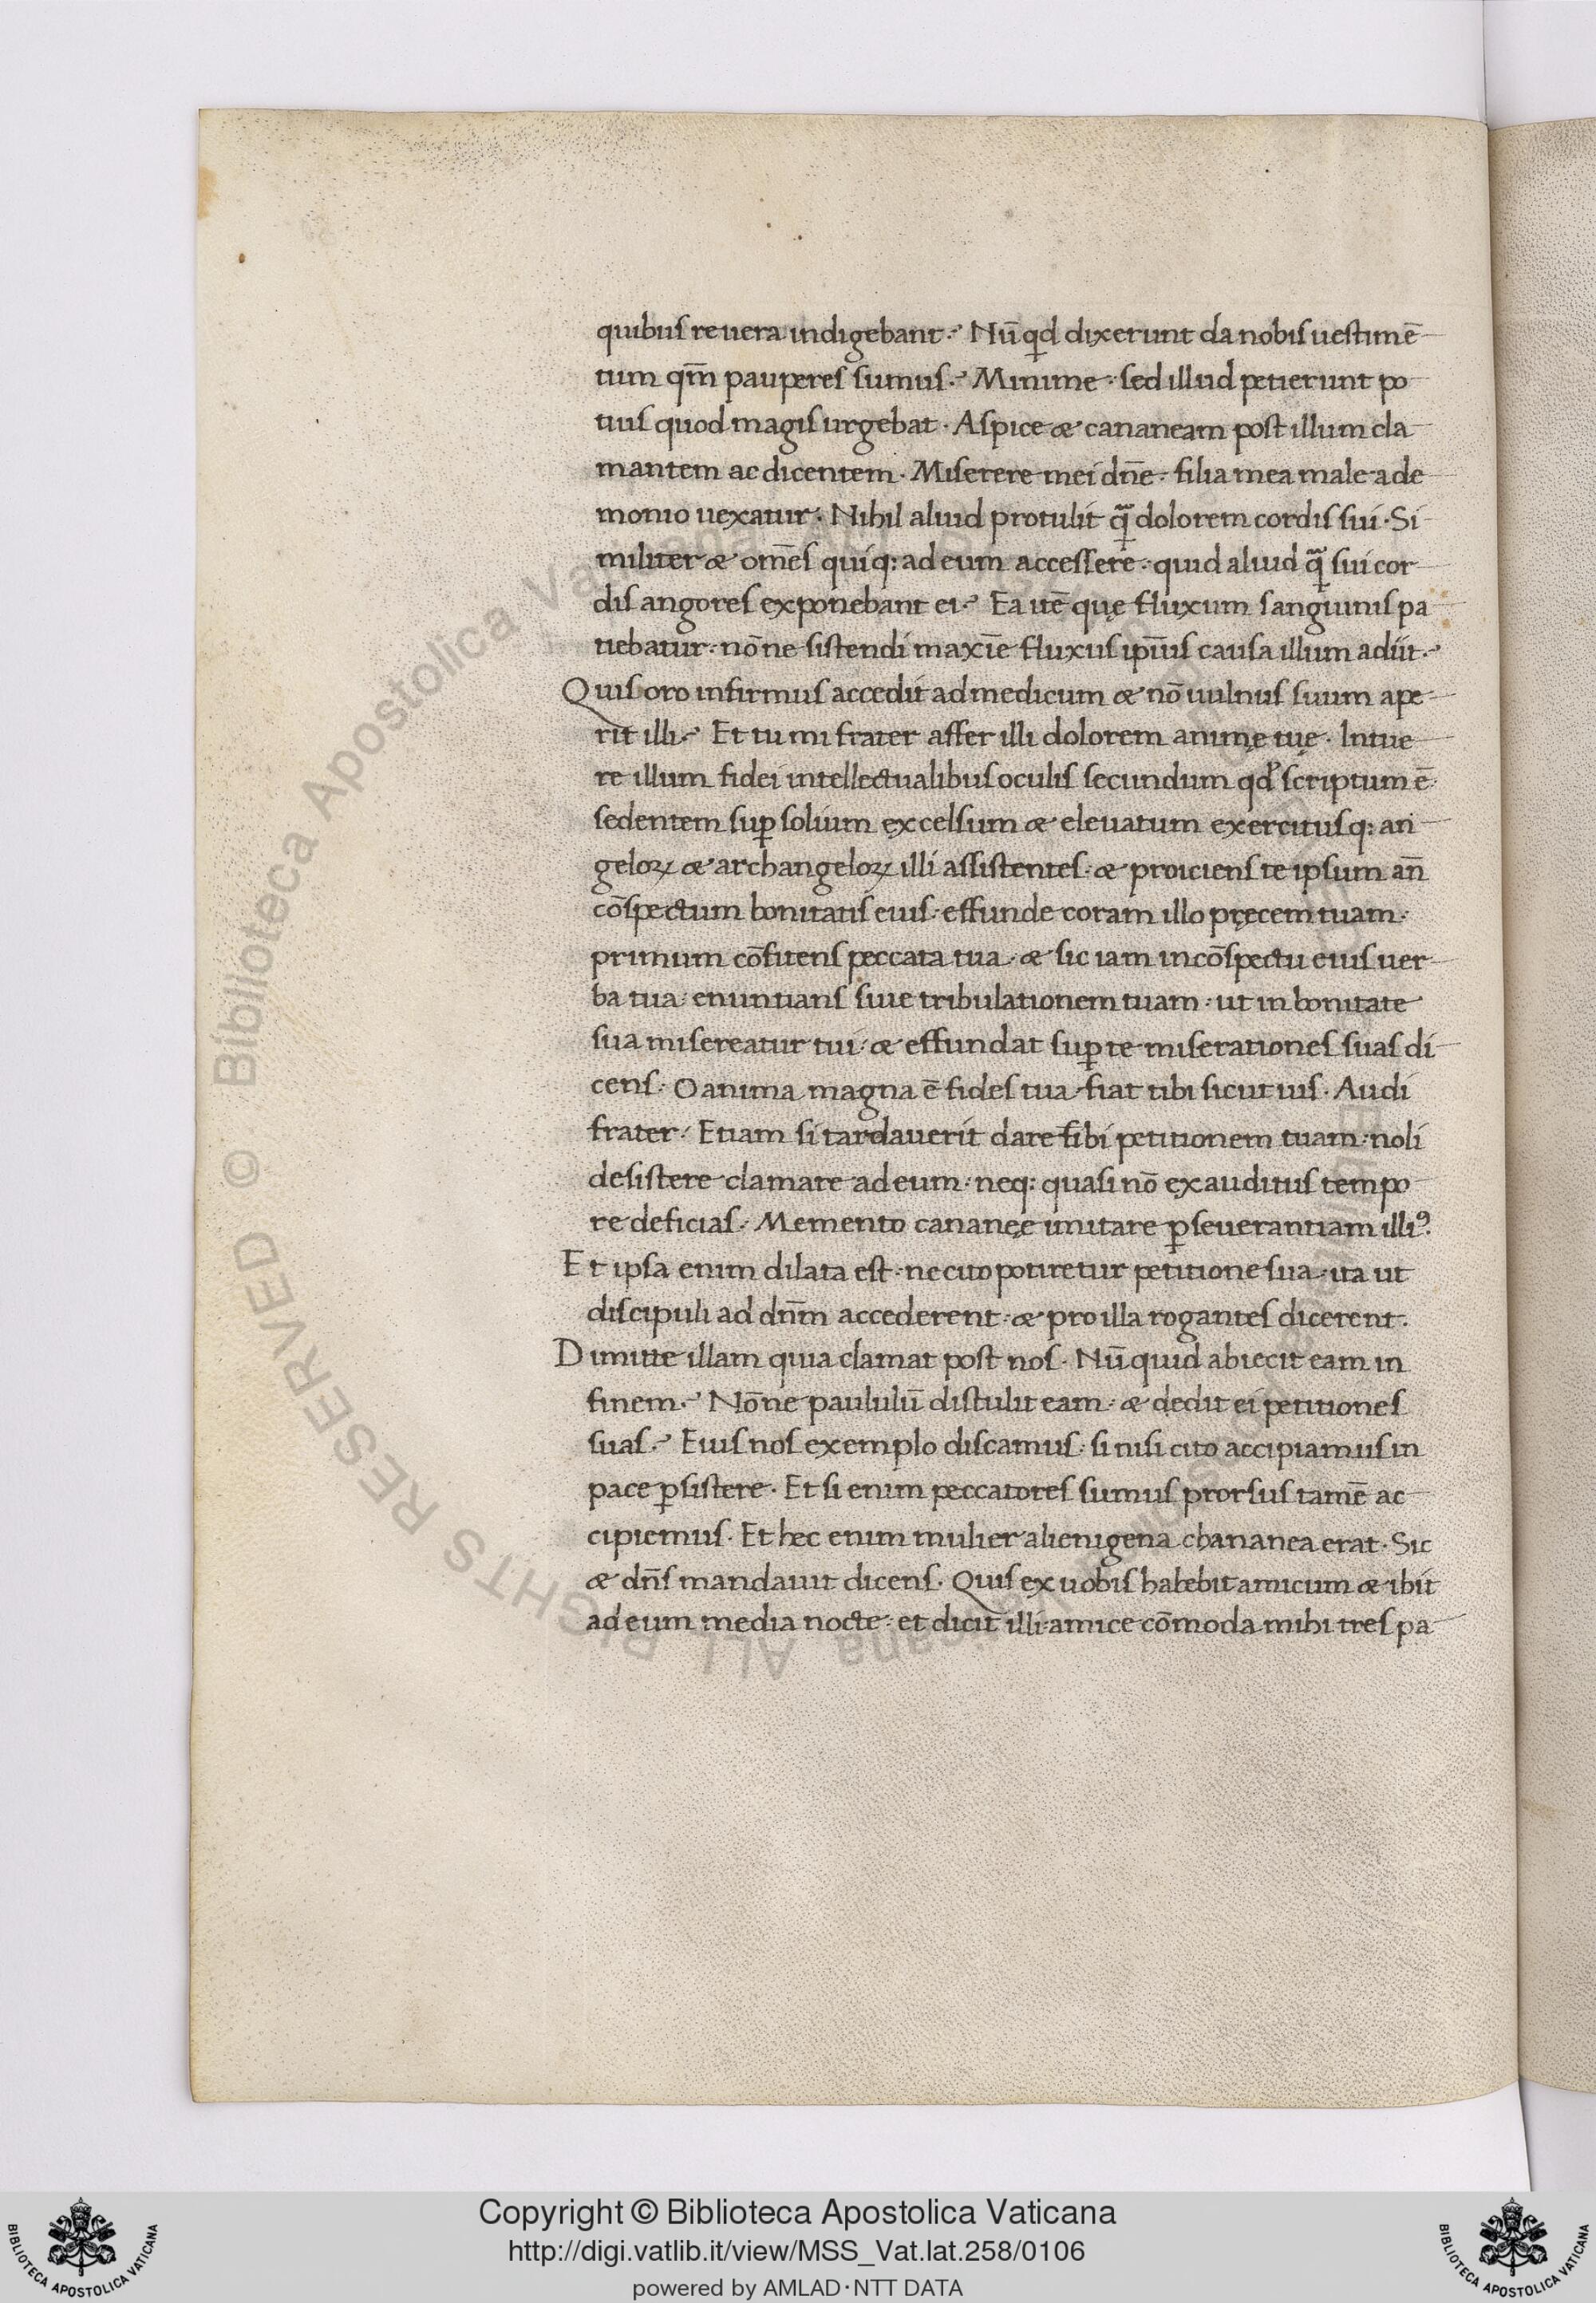 quibus reuera indigebant? Nū qͥd dixerunt da nobis uestimē
tum qm̄ pauperes sumus? Minime: sed illud petierunt po
tius quod magis urgebat. Aspice & cananeam post illum cla
mantem ac dicentem. Miserere mei dn̄e: filia mea male a de
monio uexatur. Nihil aliud protulit qᷓ dolorem cordis sui. Si
militer & om̄es quiq: ad eum accessere: quid aliud qᷓ sui cor
dis angores exponebant ei? Ea itē quę fluxum sanguinis pa
tiebatur: nōne sistendi maxīe fluxus ipīus causa illum adiit?
Quis oro infirmus accedit ad medicum & nō uulnus suum ape
rit illi? Et tu mi frater affer illi dolorem animę tuę. Intue
re illum fidei intellectualibus oculis secundum qd' scriptum ē
sedentem suꝑ solium excelsum & eleuatum exercitusq: an
geloꝝ & archangeloꝝ illi assistentes: & proiciens te ipsum an̄
cōspectum bonitatis eius: effunde coram illo pręcem tuam:
primum cōfitens peccata tua: & sic iam in cōspectu eius uer
ba tua: enuntians siue tribulationem tuam: ut in bonitate
sua misereatur tui: & effundat suꝑ te miserationes suas di
cens: O anima magna ē fides tua: fiat tibi sicut uis. Audi
frater: Etiam si tardauerit dare tibi petitionem tuam: noli
desistere clamare ad eum: neq: quasi nō exauditus tempo
re deficias. Memento cananeę imitare ꝑseuerantiam illiꝰ:
Et ipsa enim dilata est: ne cito potiretur petitione sua: ita ut
discipuli ad dn̄m accederent: & pro illa rogantes dicerent.
Dimitte illam quia clamat post nos. Nū quid abiecit eam in
finem? Nōne paululū distulit eam: & dedit ei petitiones
suas? Eius nos exemplo discamus: si nisi cito accipiamus in
pace ꝑsistere. Et si enim peccatores sumus prorsus tamē ac
cipiemus. Et hec enim mulier alienigena chananea erat. Sic
& dn̄s mandauit dicens. Quis ex uobis habebit amicum & ibit
ad eum media nocte: et dicit illi: amice cōmoda mihi tres pa
© Biblioteca Apostolica Vaticana ALL RIGHTS RESERVED
Copyright © Biblioteca Apostolica Vaticana
http://digi.vatlib.it/view/MSS_Vat.lat.258/0106
powered by AMLAD·NTT DATA
BIBLIOTECA APOSTOLICA VATICANA
BIBLIOTECA APOSTOLICA VATICANA